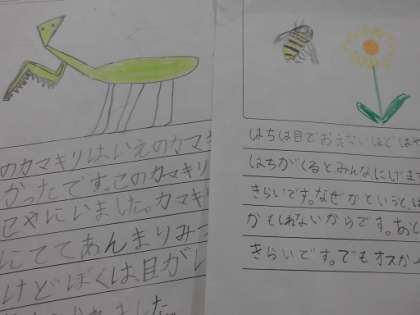 のカマキリはいえのカマ
かったです。このカマキリ
にいました。カマキ
にててあんまりみつ
けどぼくは、目がい
ました。
はちは目でおえないほどはや
はちがくるとみんなにげます
きらいです。なぜかというとは
かもしれないからです。
きらいです。でもオスか